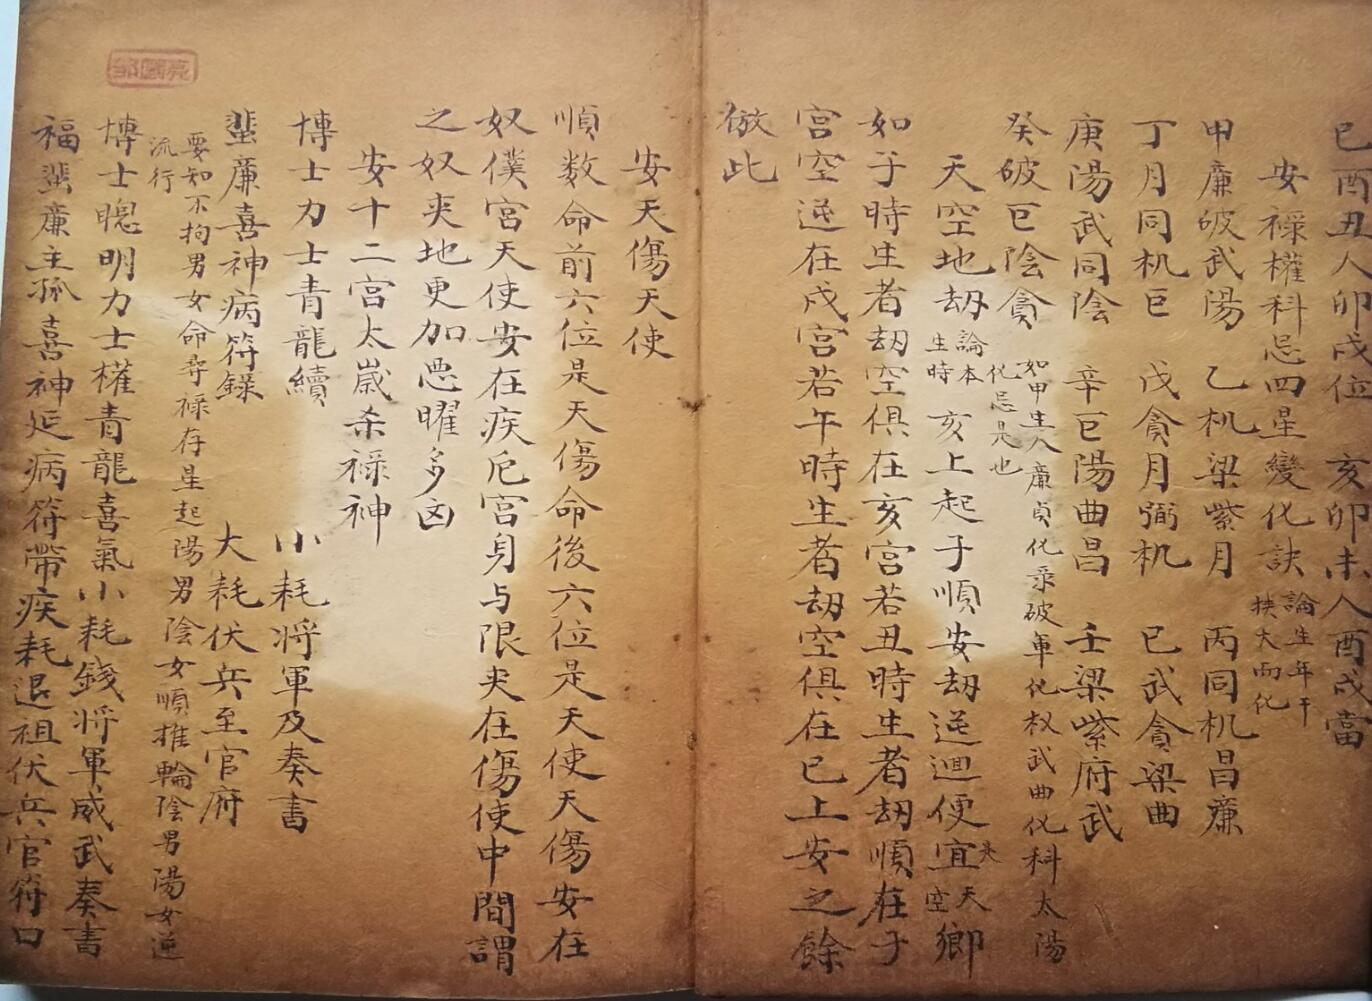 巳酉丑人卯戌位 亥卯未人酉戌當
安祿權科忌四星變化訣
論生年干
挨大而化
甲廉破武陽 乙机梁紫月 丙同机昌廉
丁月同机巨 戊貪月弼机 己武貪梁曲
庚陽武同陰 辛巨陽曲昌 壬梁紫府武
癸破巨陰貪
如甲生人廉貞化录破軍化权武曲化科太陽
化忌是也
天空地刼
論本
生時
亥上起子順安刼逆迴便宜
天空
鄉
如子時生者刼空俱在亥宮若丑時生者刼順在子
宮空逆在戌宮若午時生者刼空俱在巳上安之餘
倣此
安天傷天使
順数命前六位是天傷命後六位是天使天傷安在
奴僕宮天使安在疾厄宮身与限夾在傷使中間謂
之奴夾地更加悪曜多凶
安十二宮太歲杀祿神
博士力士青龍續 小耗将軍及奏書
蜚廉喜神病符錄 大耗伏兵至官府
要知不拘男女命尋祿存星起陽男陰女順推輪陰男陽女逆
流行
博士聰明力士權青龍喜氣小耗錢将軍威武奏書
福蜚廉主孤喜神延病符帶疾耗退祖伏兵官符口
鄒國亮